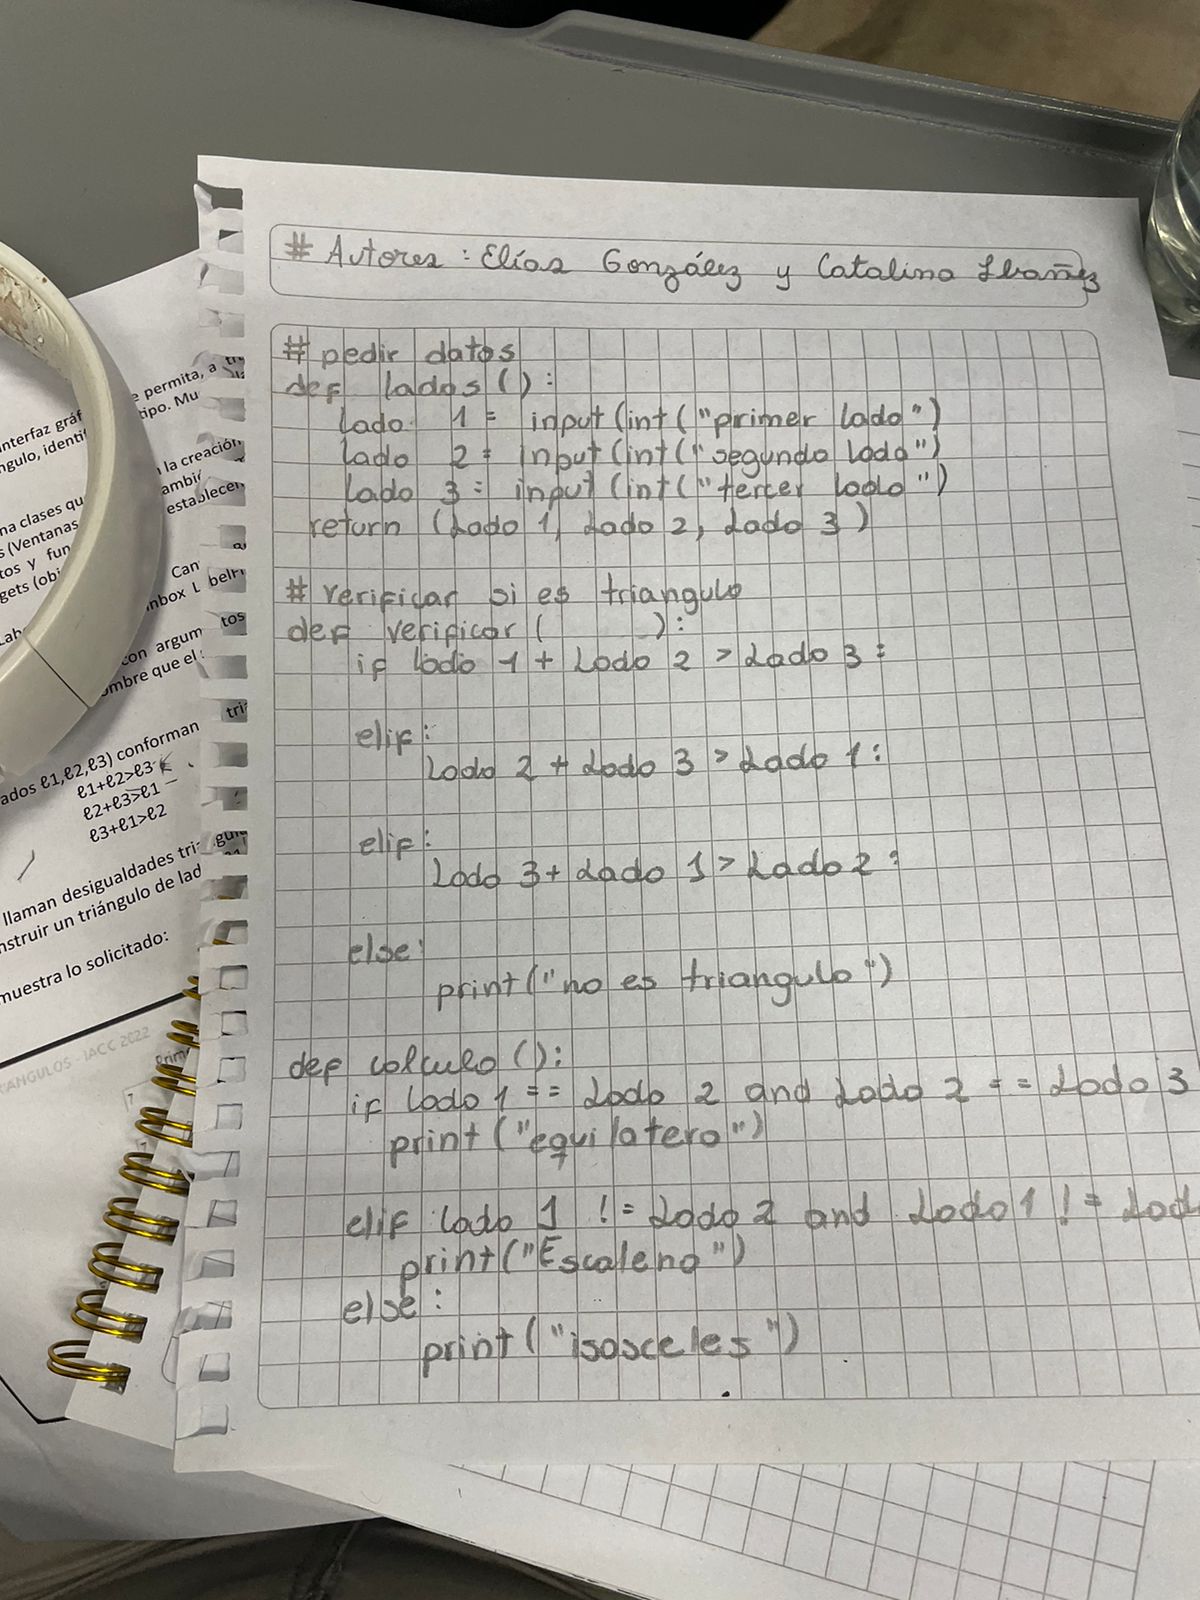 # Autores : Elías González y Catalina Ibañez
# pedir datos
def lados ():
lado 1 = input (int ("primer lado")
lado 2 = input (int ("segundo lado")
lado 3 = input (int ("tercer lado")
return (Lado 1, Lado 2, Lado 3)
# verificar si es triangulo
def verificar ( ):
if lado 1 + Lado 2 > Lado 3 :
elif:
Lado 2 + Lado 3 > Lado 1 :
elif:
Lado 3 + Lado 1 > Lado 2 :
else:
print ("no es triangulo")
def calculo ():
if lado 1 == Lado 2 and Lado 2 == Lado 3
print ("equilatero")
elif lado 1 != Lado 2 and Lado 1 != Lad
print ("Escaleno")
else :
print ("isosceles")
e permita, a
interfaz gráf tipo. Mu
ngulo, identi
la creación
ambié
na clases qu establecen
s (Ventanas
tos y fun Can
gets (obj inbox L
con argum tos
ombre que el
ados ℓ1,ℓ2,ℓ3) conforman tri
ℓ1+ℓ2>ℓ3
ℓ2+ℓ3>ℓ1
ℓ3+ℓ1>ℓ2
llaman desigualdades tri
nstruir un triángulo de lad
muestra lo solicitado:
ANGULOS - IACC 2022
Prim